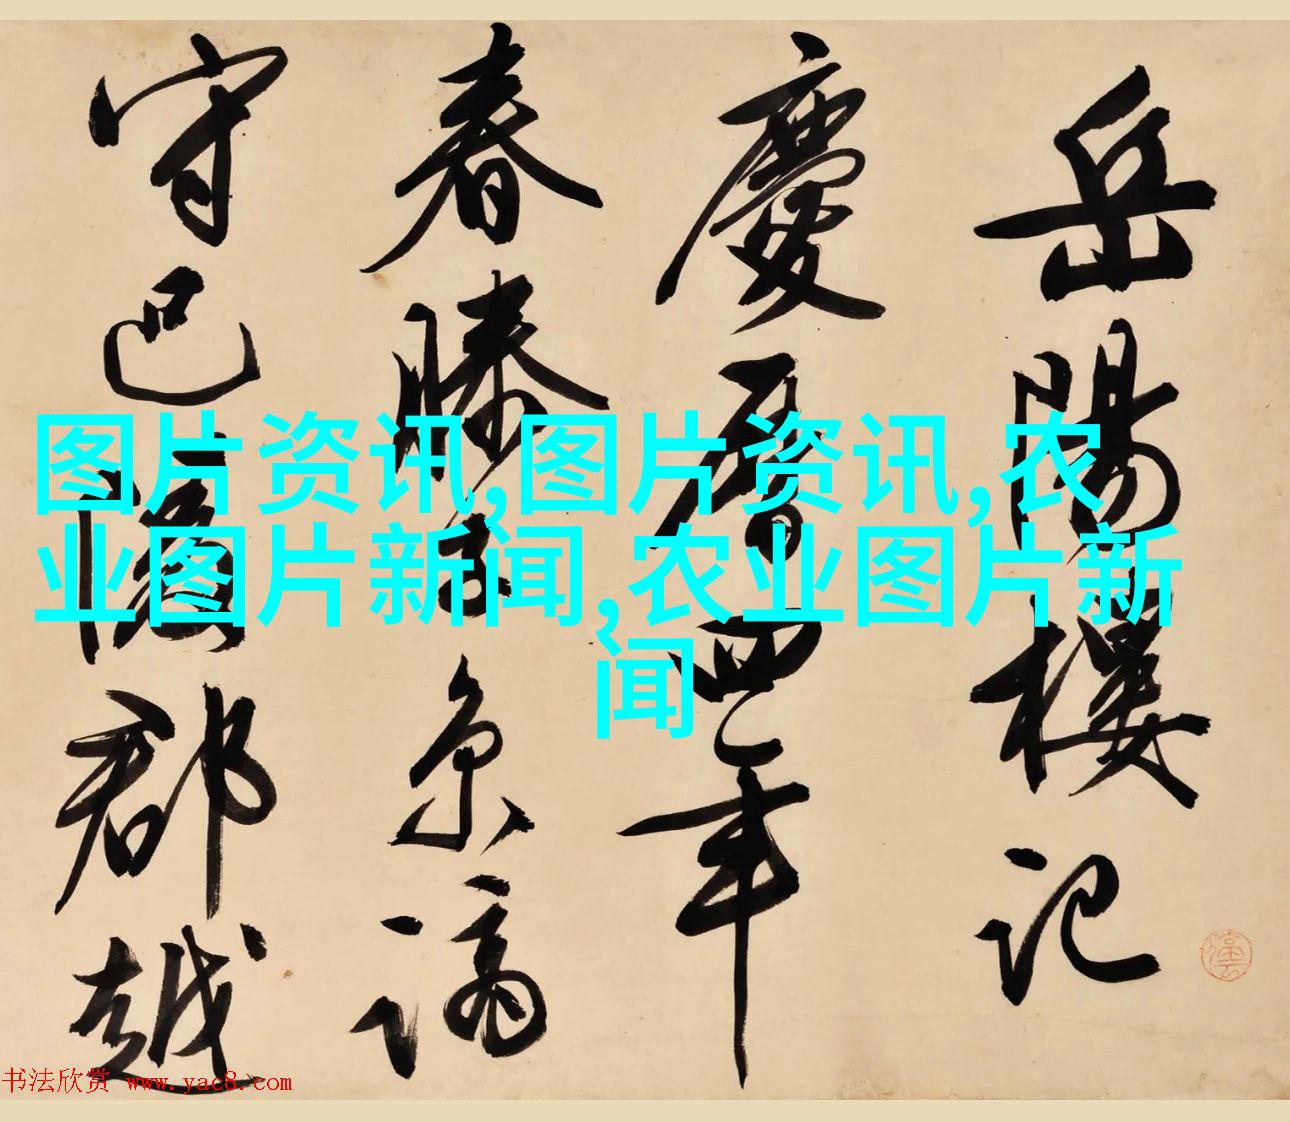 岳陽樓記
慶曆四年
春滕子京謫
守巴陵郡越
图片资讯,图片资讯,农
业图片新闻,农业图片新
闻
书法欣赏 www.yac8.com